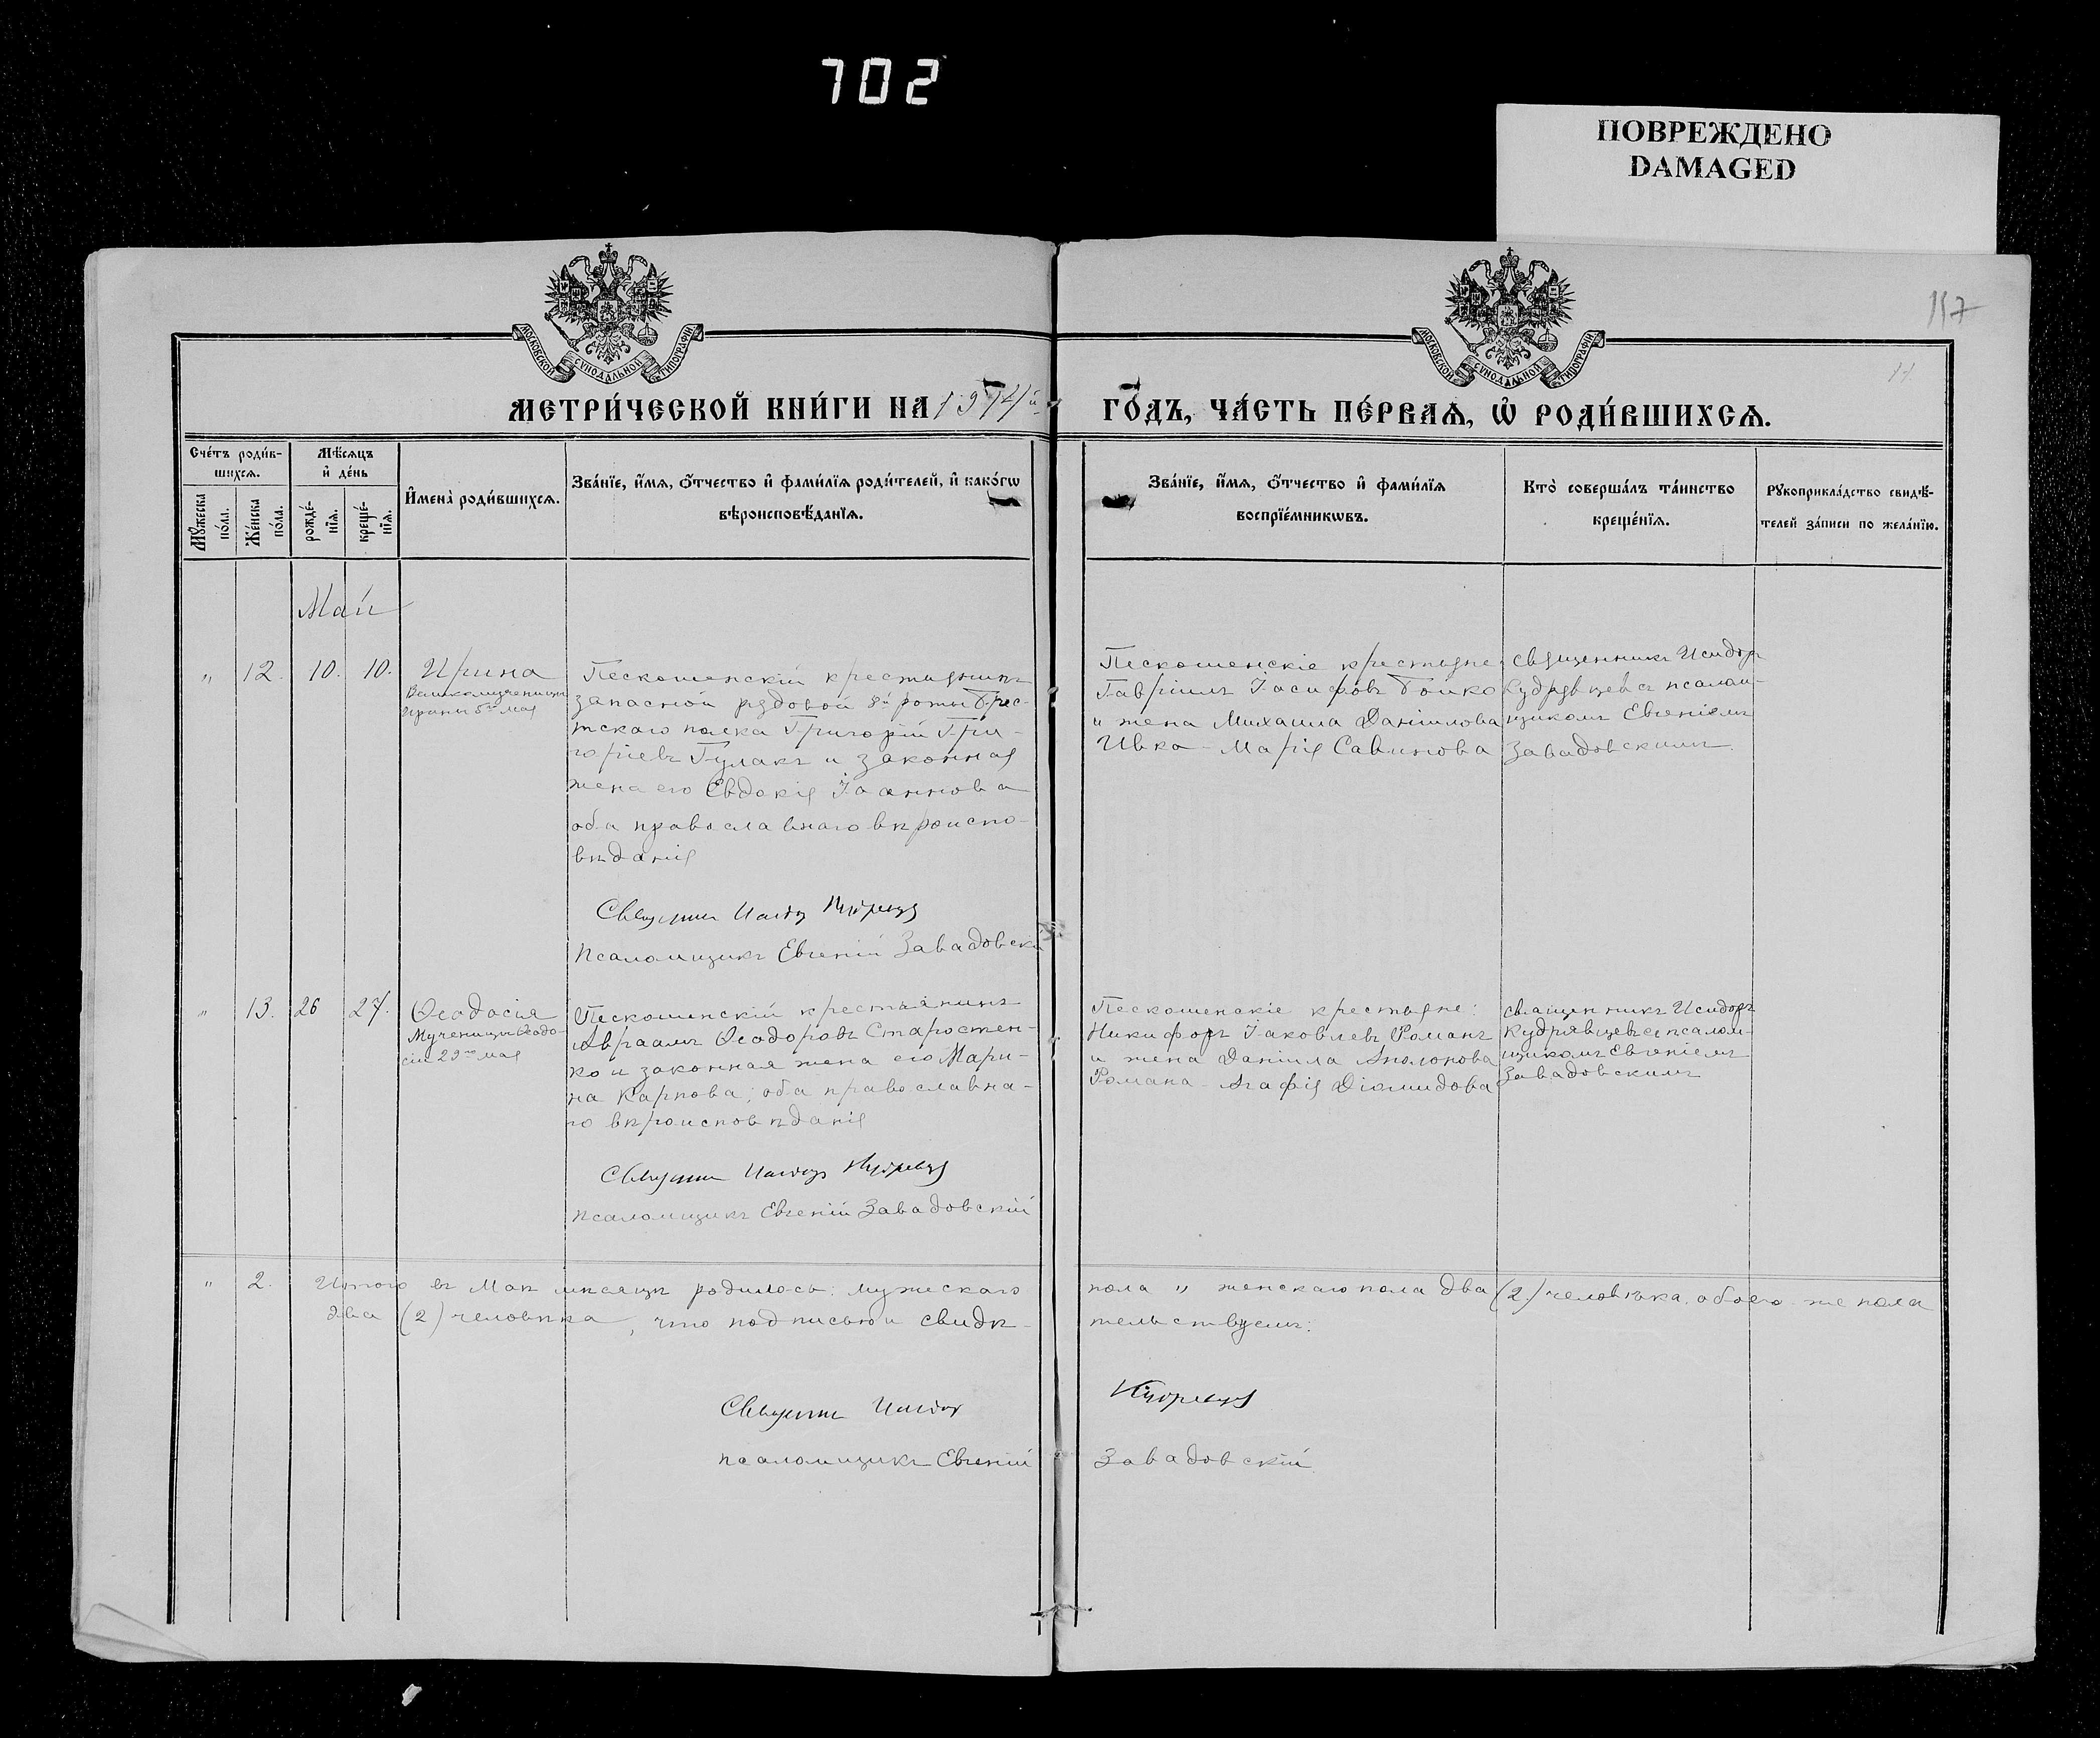 702
ПОВРЕЖДЕНО
DAMAGED
117
11
МОСКОВСКОЙ СѴНОДАЛЬНОЙ ТИПОГРАФІИ
МОСКОВСКОЙ СѴНОДАЛЬНОЙ ТИПОГРАФІИ
МЕТРИ́ЧЕСКОЙ КНИ́ГИ НА 1914й
ГО́ДЪ, ЧА́СТЬ ПЕ́РВАѦ, Ѽ РОДИ́ВШИХСѦ.
Сче́тъ роди́в-
шихсѧ.
Мꙋ́жеска
по́ла.
Же́нска
по́ла.
Мѣ́сѧцъ
и҆ де́нь
рожде́-
нїѧ.
креще́-
нїѧ.
И҆мена̀ роди́вшихсѧ.
Зва́нїе, и҆́мѧ, ѻ҆́тчество и҆ фами́лїѧ роди́телей, и҆ како́гѡ
вѣроисповѣ́данїѧ.
Зва́нїе, и҆́мѧ, ѻ҆́тчество и҆ фами́лїѧ
воспрїе́мникѡвъ.
Кто̀ соверша́лъ та́инство
креще́нїѧ.
Рꙋкоприкла́дство свидѣ́-
телей за́писи по жела́нїю.
Май
" 12. 10. 10. Ирина
Великомученицы
Ирины 5го мая
Пескошенскій крестьянинъ
запасной рядовой 8й роты Брес-
тскаго полка Григорій Гри-
горіевъ Гулакъ и законная
жена его Евдокія Іоаннова
оба православнаго вѣроиспо-
вѣданія
Священникъ Исидоръ Кудрявцевъ
Псаломщикъ Евгеній Завадовскій
Пескошенскіе крестьяне:
Гавріилъ Іосифовъ Бойко
и жена Михаила Даніилова
Ивко Марія Савинова
священникъ Исидоръ
Кудрявцевъ съ псалом-
щикомъ Евгеніемъ
Завадовскимъ.
" 13. 26 27. Ѳеодосія
Мученицы Ѳеодо-
сіи 29го мая
Пескошенскій крестьянинъ
Авраамъ Ѳеодоровъ Старостен-
ко и законная жена его Мари-
на Карпова; оба православна-
го вѣроисповѣданія
Священникъ Исидоръ Кудрявцевъ
Псаломщикъ Евгеній Завадовскій
Пескошенскіе крестьяне:
Никифоръ Іаковлевъ Романъ
и жена Даніила Аполонова
Романа Агафія Діомидова
священникъ Исидоръ
Кудрявцевъ съ псалом-
щикомъ Евгеніемъ
Завадовскимъ
" 2. Итого въ Маѣ мѣсяцѣ родилось: мужескаго пола " женскаго пола два (2) человѣка, обоего же пола
два (2) человѣка, что подписью и свидѣ-
тельствуемъ:
Священникъ Исидоръ Кудрявцевъ
псаломщикъ Евгеній Завадовскій